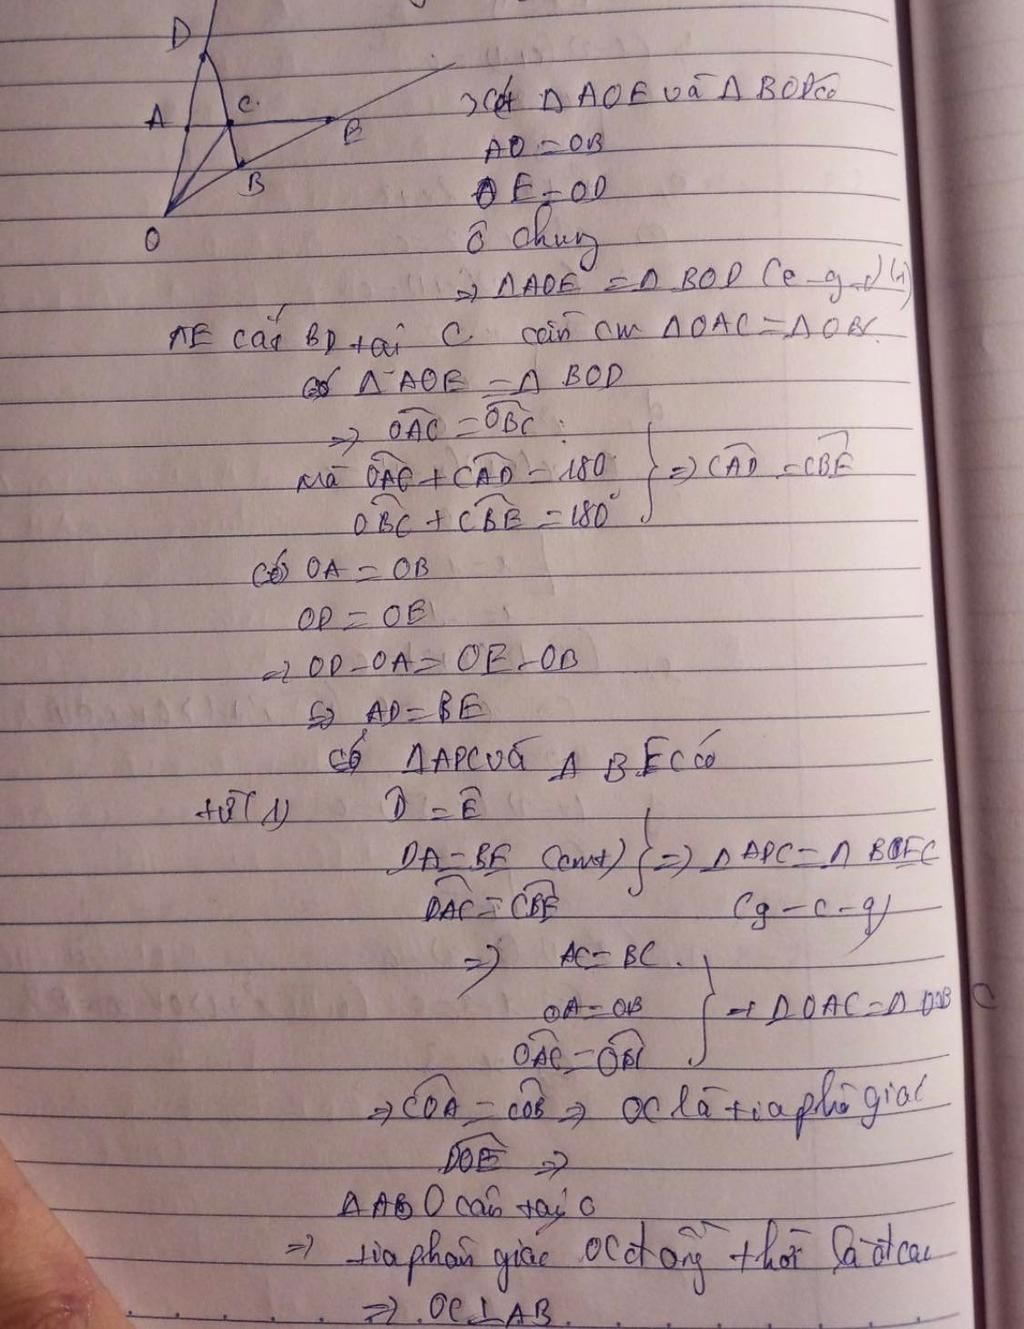 D
A
C.
E
B
O
⇒ Có ΔAOE và ΔBOD có
AO = OB
OE = OD
Ô chung
⇒ ΔAOE = ΔBOD (c-g-c) (1)
AE cắt BD tại C. cần cm ΔOAC = ΔOBC.
có ΔAOE = ΔBOD
⇒ OAC = OBC
Mà OAC + CAD = 180
OBC + CBE = 180° } ⇒ CAD = CBE
Có OA = OB
OD = OE
⇒ OD - OA = OE - OB
⇒ AD = BE
có ΔADC và ΔBEC có
từ (1) D̂ = Ê
DA = BE (cmt) } ⇒ ΔADC = ΔBEC
DAC = CBE (g-c-g)
⇒ AC = BC.
OA = OB } → ΔOAC = ΔOBC
OAC = OBC
⇒ COA = COB ⇒ OC là tia phân giác
DOE ⇒
ΔABO cân tại O
⇒ tia phân giác OC đồng thời là đt cao
⇒ OC⊥AB